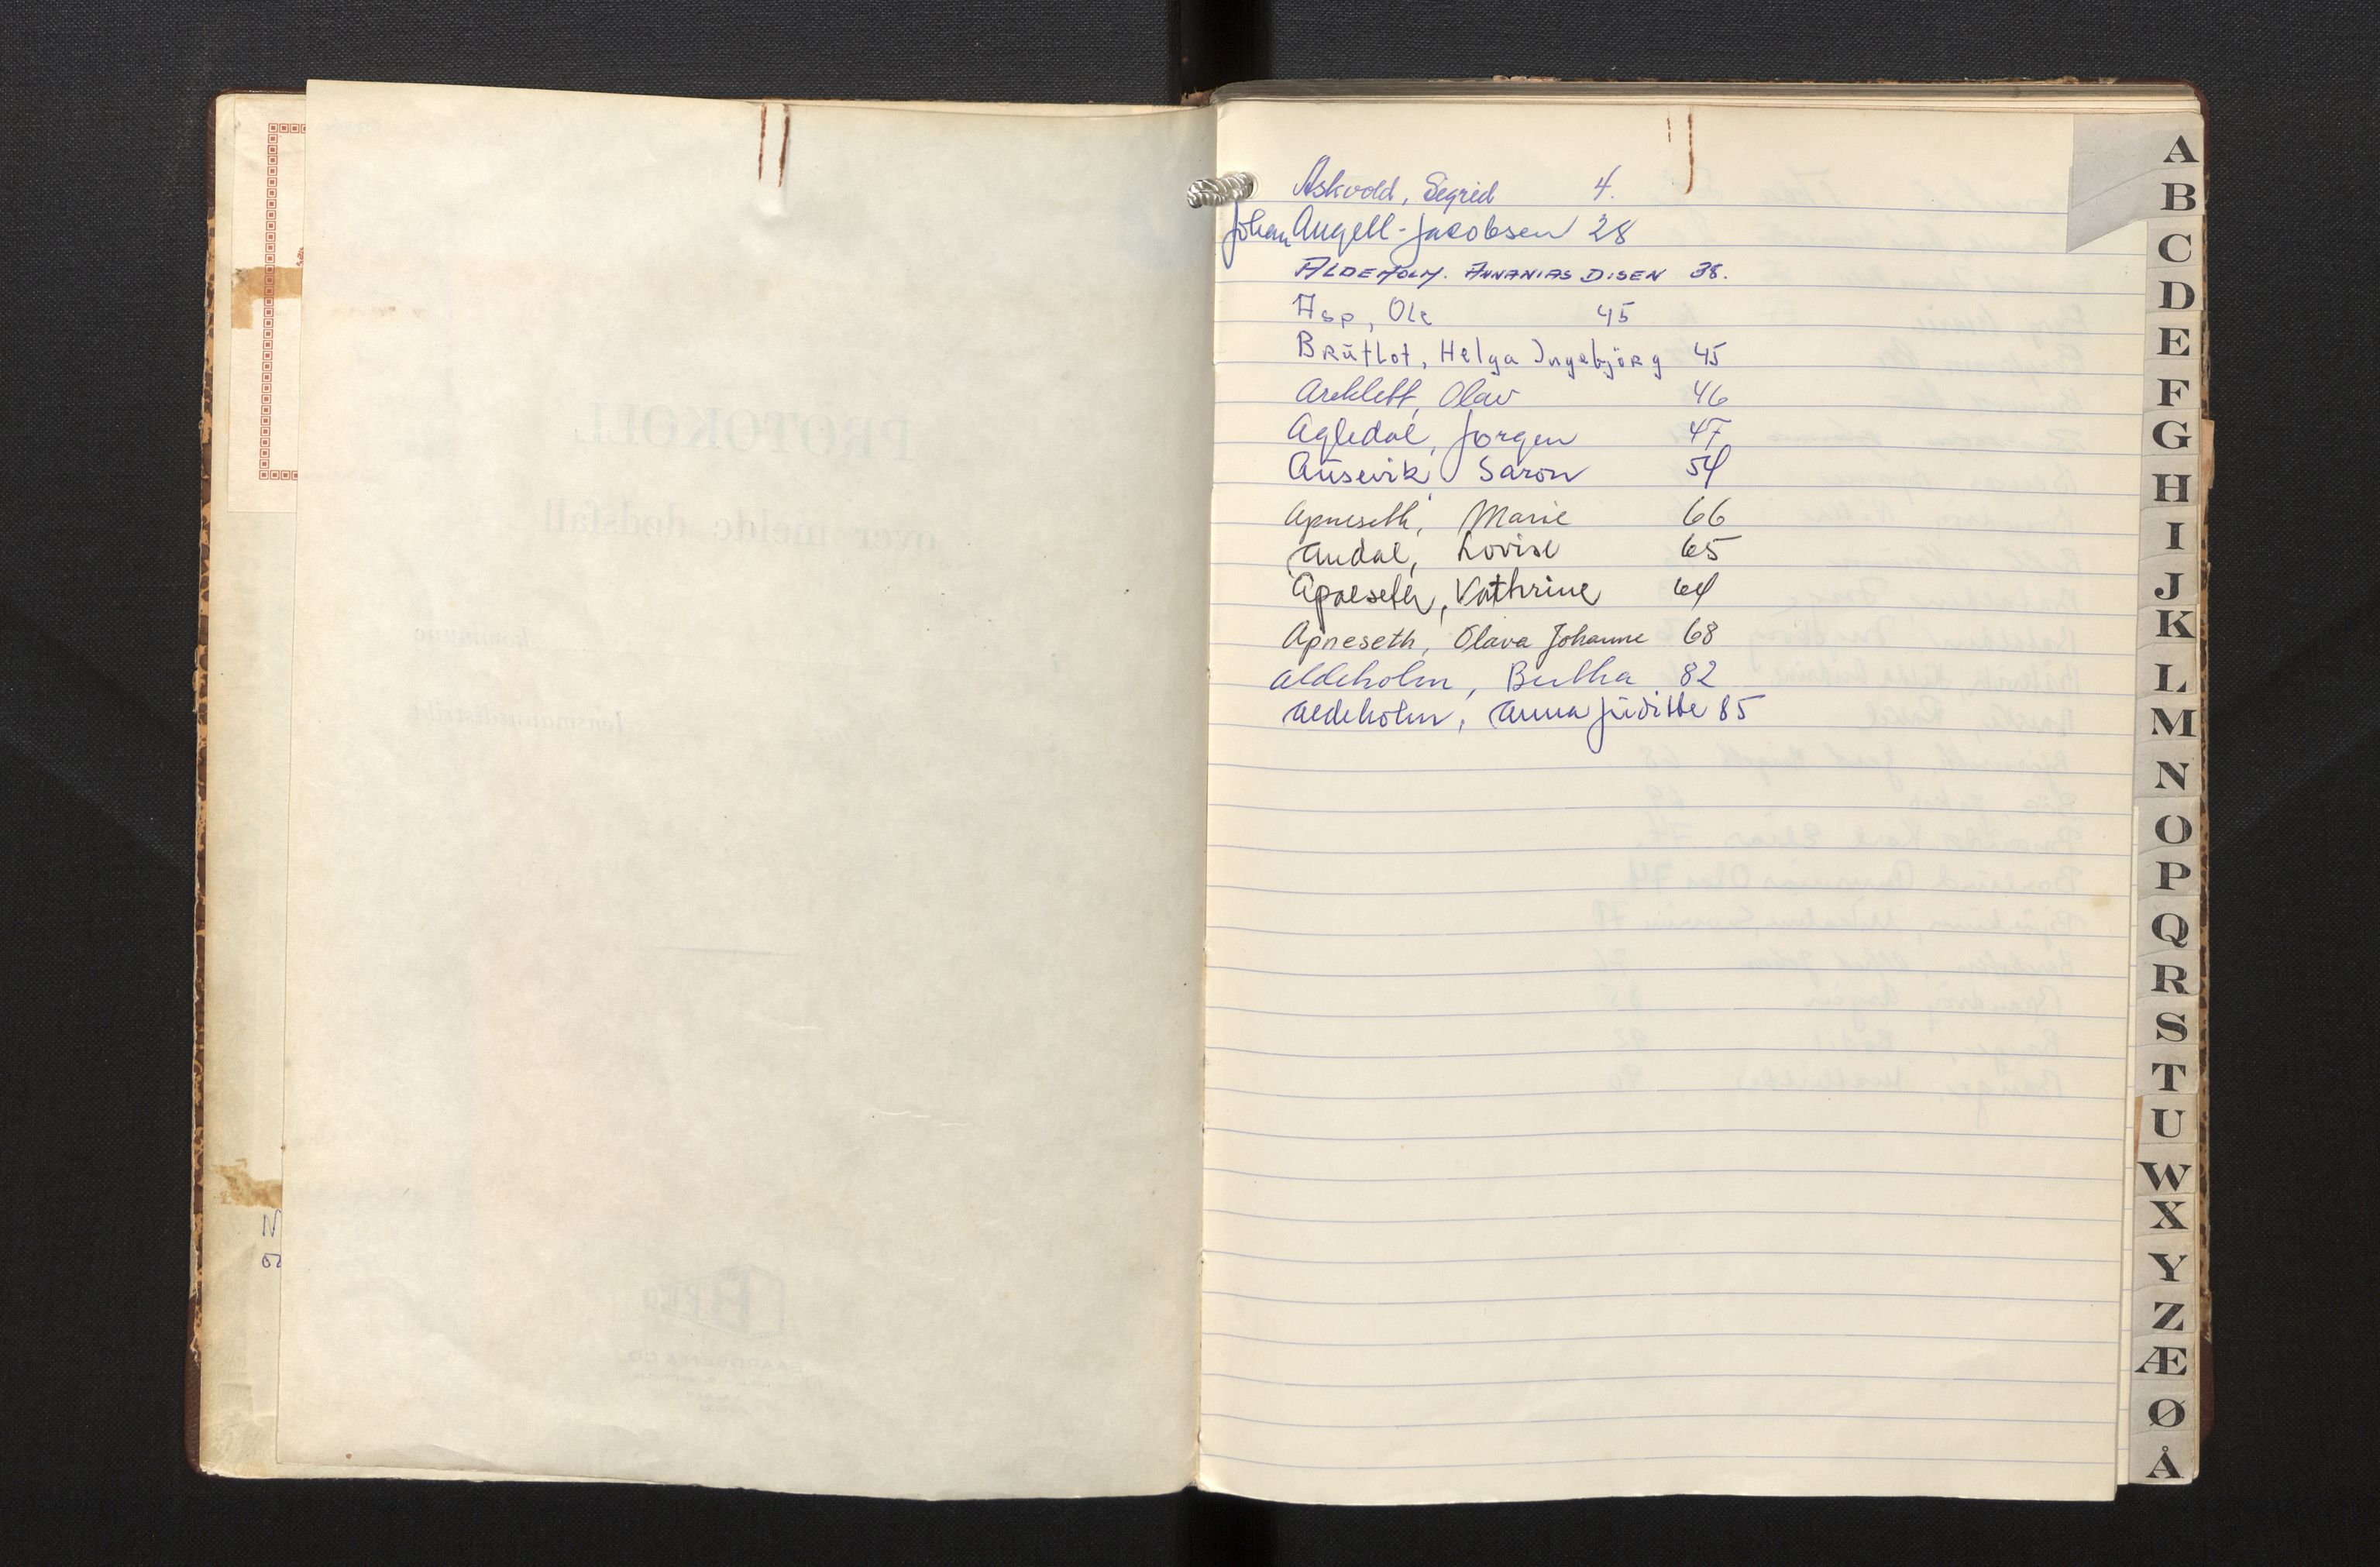 Askvold, Sigrid 4.
Johan Angell-Jacobsen 28
ALDEHOLM. ANNANIAS DISEN 38.
Asp, Ole 45
Brütlot, Helga Ingebjörg 45
Areklett, Olav 46
Agledal, Jørgen 47
Aüsevik, Saron 54
Apneseth, Marie 66
Andal, Lovise 65
Apneseth, Kathrine 64
Apneseth, Olava Johanne 68
Aldeholm, Bertha 82
Aldeholm, Anna Jüditte 85
PROTOKOLL
over melde dødsfall
i kommune
lensmannsdistrikt
A
B
C
D
E
F
G
H
I
J
K
L
M
N
O
P
Q
R
S
T
U
W
X
Y
Z
Æ
Ø
Å